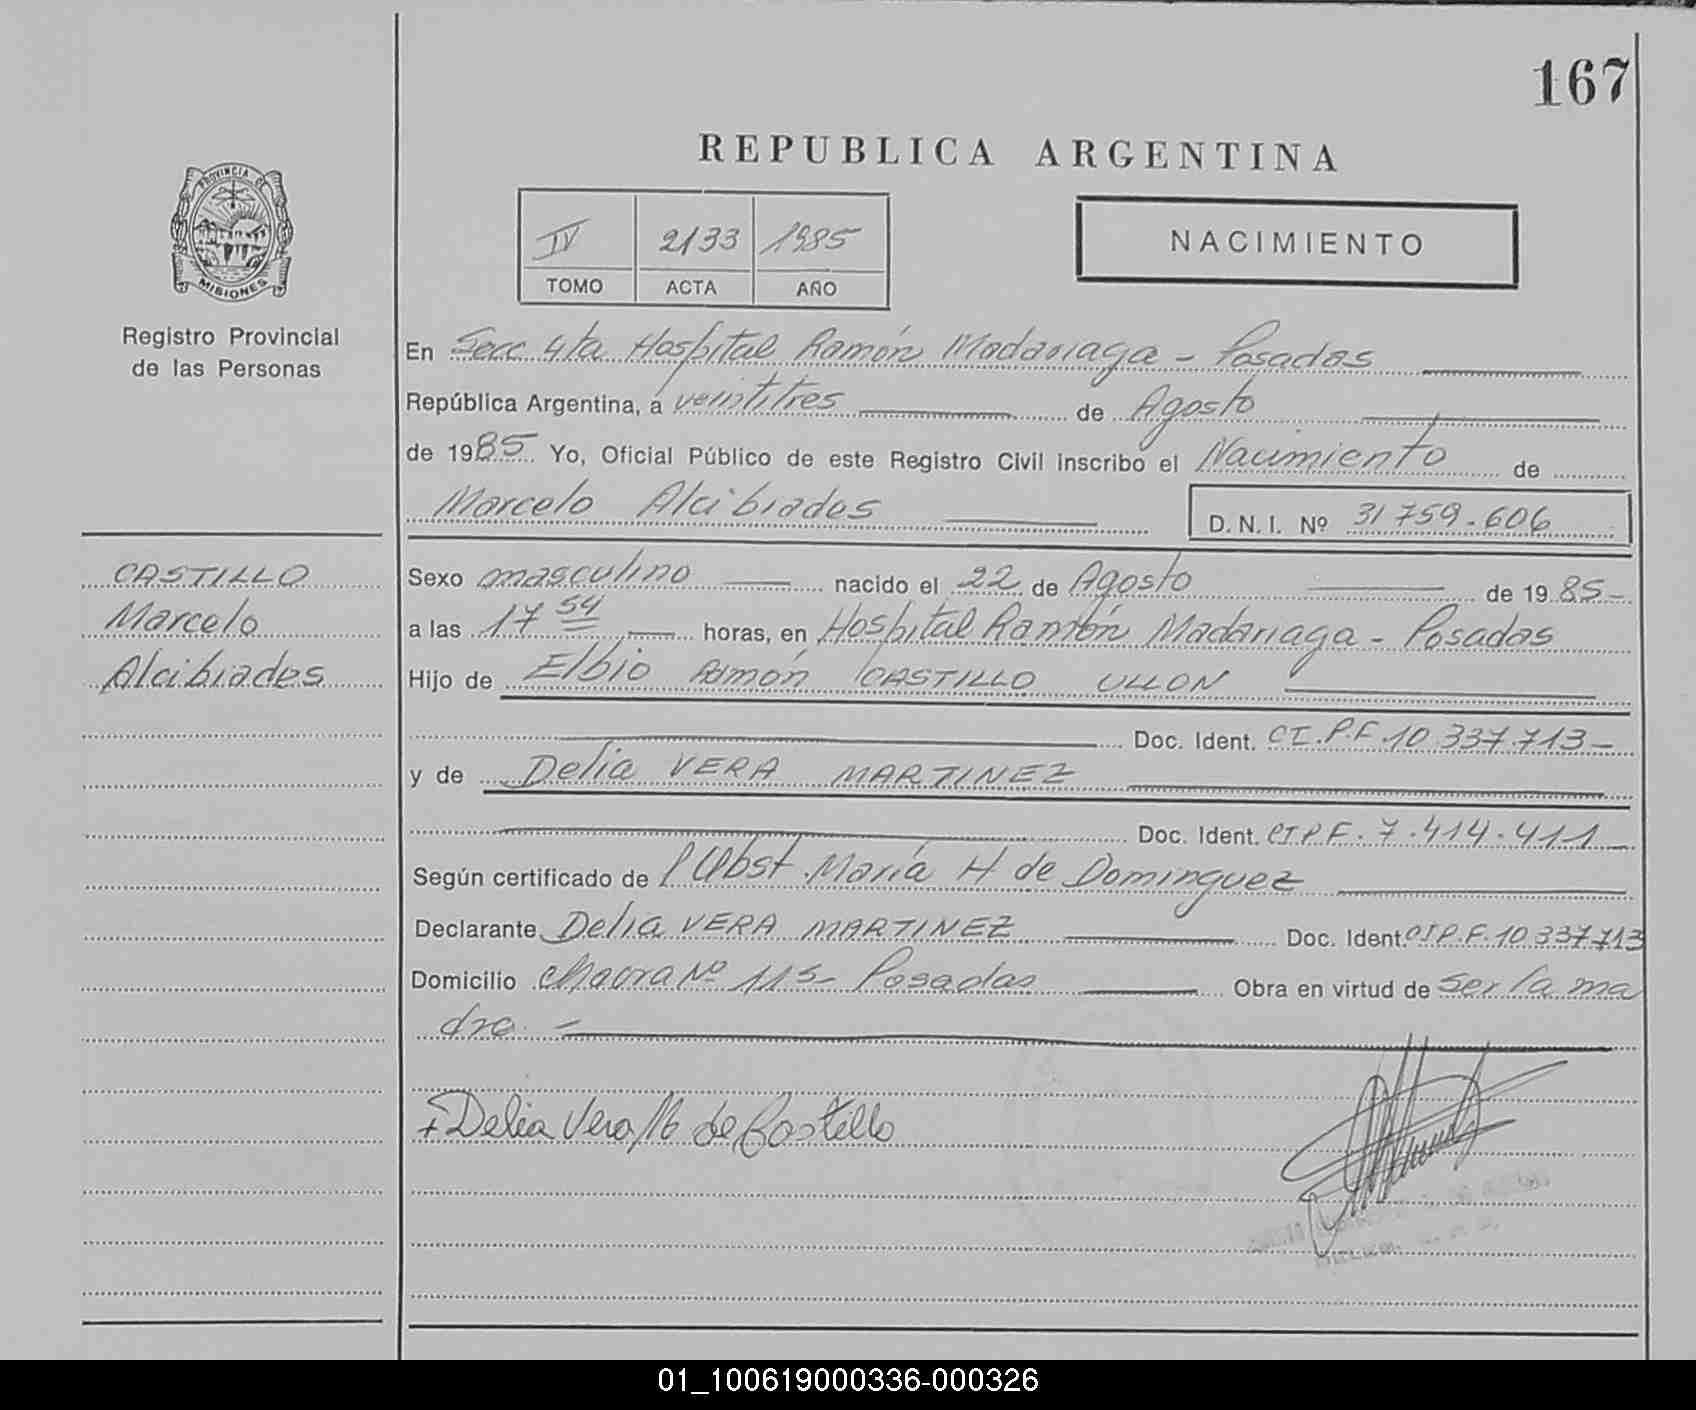 167
REPUBLICA ARGENTINA
PROVINCIA DE
MISIONES
IV 2133 1985
TOMO ACTA AÑO
NACIMIENTO
Registro Provincial
de las Personas
En Secc 4ta Hospital Ramón Madariaga - Posadas
República Argentina, a veintitres de Agosto
de 1985 Yo, Oficial Público de este Registro Civil inscribo el Nacimiento de
Marcelo Alcibiades
D.N.I. Nº 31759.606
CASTILLO
Marcelo
Alcibiades
Sexo masculino nacido el 22 de Agosto de 1985-
a las 17 54 horas, en Hospital Ramón Madariaga - Posadas
Hijo de Elbio Ramón CASTILLO ULLON
Doc. Ident. CI.P.F.10.337.713-
y de Delia VERA MARTINEZ
Doc. Ident. CIPF.7.414.411
Según certificado de Obst. María H de Dominguez
Declarante Delia VERA MARTINEZ Doc. Ident. CIP.F.10.337.713
Domicilio Nº 115- Posadas Obra en virtud de ser la ma
dre.-
Delia Vera M de Castillo
01_100619000336-000326